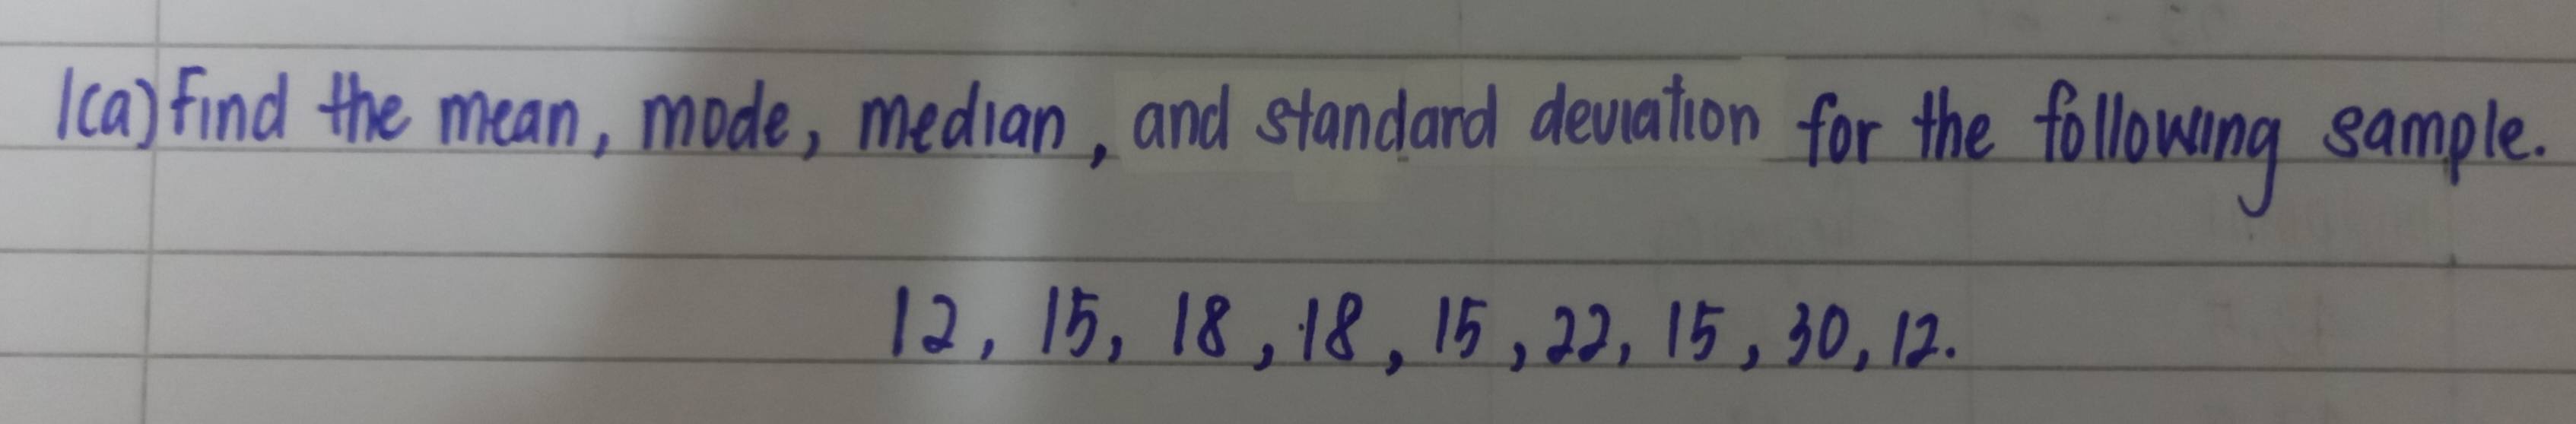 1(a) Find the mean, mode, median, and standard deviation for the following sample.
12, 15, 18, 18, 15, 22, 15, 30, 12.